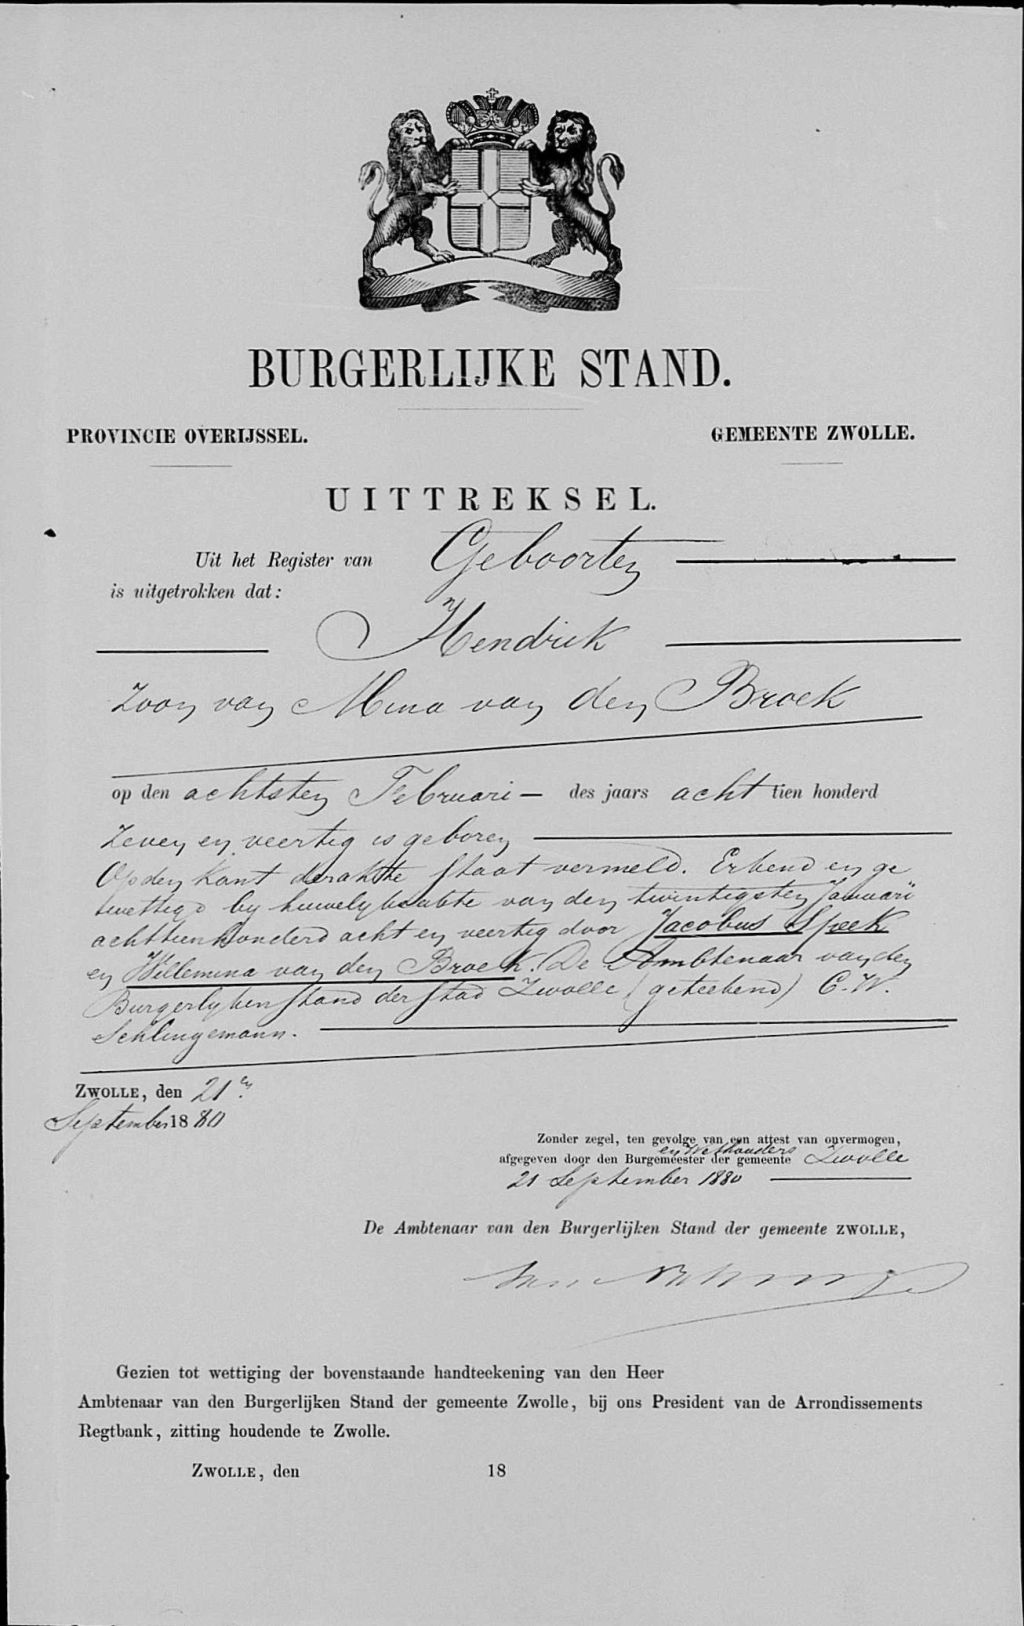 BURGERLIJKE STAND.
PROVINCIE OVERIJSSEL.
GEMEENTE ZWOLLE.
UITTREKSEL.
Uit het Register van Geboorten
is uitgetrokken dat:
Hendrik
Zoon van Mina van den Broek
op den achtsten Februari des jaars acht tien honderd
Zeven en veertig is geboren
Op den kant der akte staat vermeld. Erkend en ge
wettigd by huwelyksakte van den twintigsten Januarii
achttienhonderd acht en veertig door Jacobus Speek
en Willemina van den Broek. De Ambtenaar van den
Burgerlyken stand der stad Zwolle (geteekend) C. W.
Schlingemann.
ZWOLLE, den 21en
September 1880
Zonder zegel, ten gevolge van een attest van onvermogen,
en Wethouders
afgegeven door den Burgemeester der gemeente Zwolle
21 September 1880
De Ambtenaar van den Burgerlijken Stand der gemeente ZWOLLE,
Gezien tot wettiging der bovenstaande handteekening van den Heer
Ambtenaar van den Burgerlijken Stand der gemeente Zwolle, bij ons President van de Arrondissements
Regtbank, zitting houdende te Zwolle.
ZWOLLE, den 18